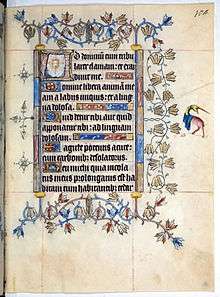 Ad dominum cum tribu
larer clamaui: et exau
diuit me.
Domine libera animam me
am a labiis iniquis: et a lin
gua dolosa.
Quid detur tibi aut quid
apponatur tibi: ad linguam
dolosam.
Sagitte potentis acute:
cum carbonib; desolatoriis.
Heu michi quia incola
tus meus prolongatus est ha
bitaui cum habitantib; cedar